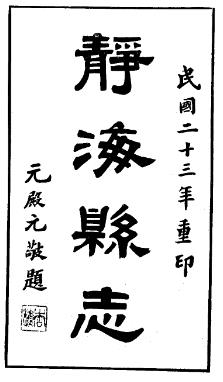 民國二十三年重印
靜海縣志
元殿元敬題